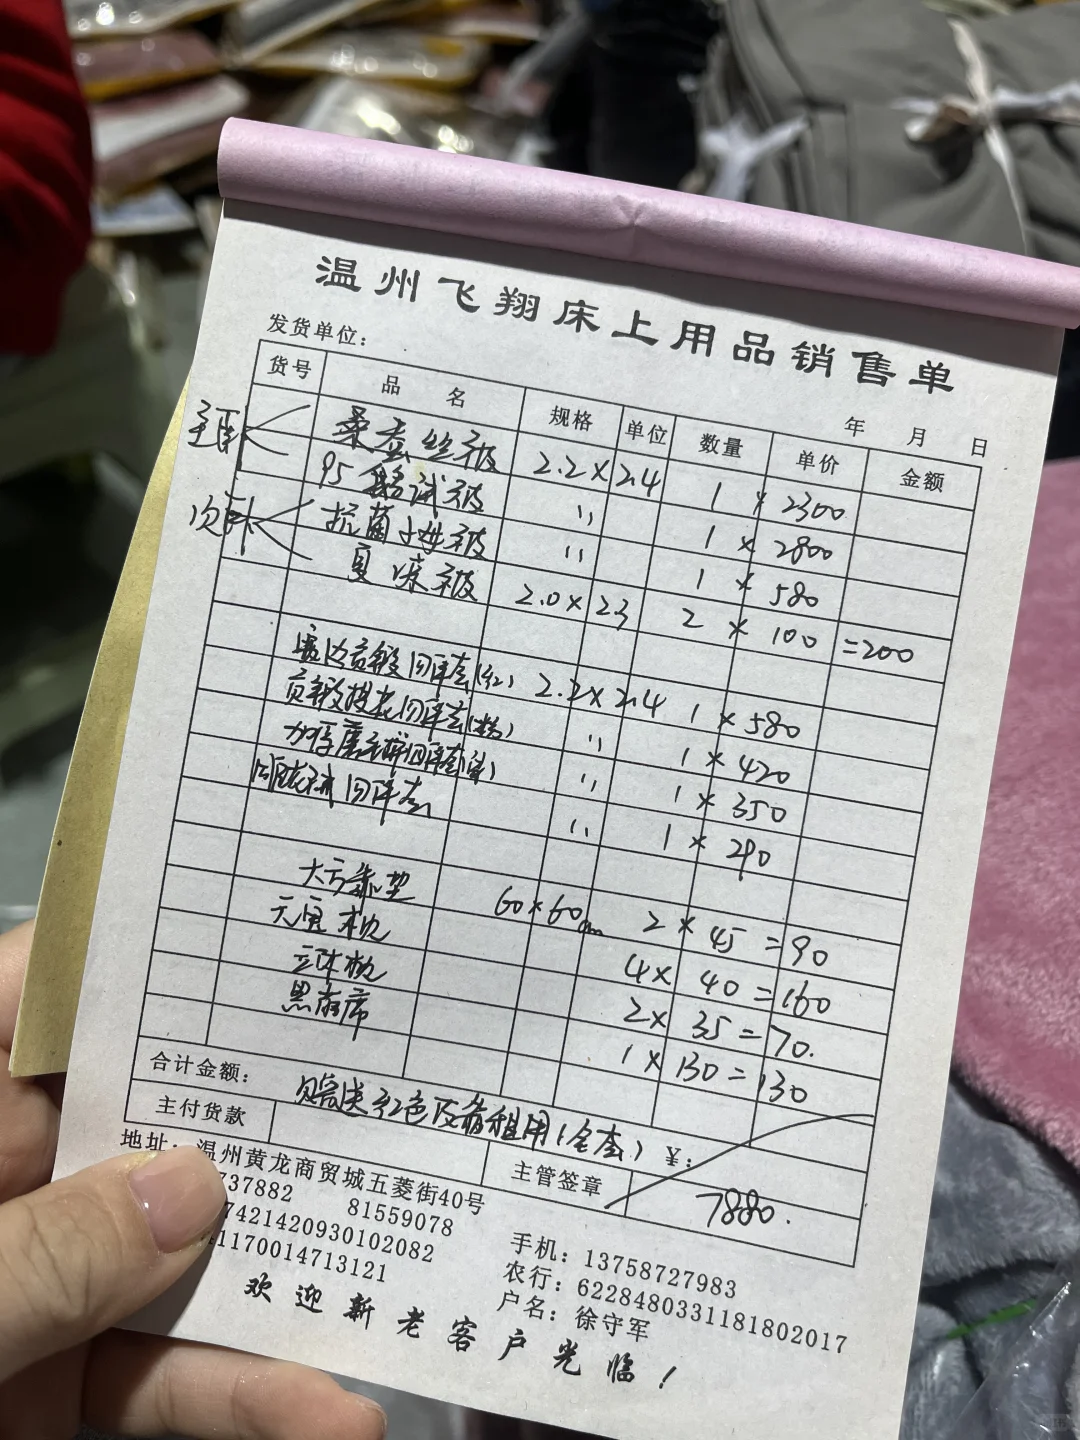 温州飞翔床上用品销售单
发货单位：
年 月 日
货号 品名 规格 单位 数量 单价 金额
主卧 桑蚕丝被 2.2×2.4 1 × 2300
95鹅绒被 〃 1 × 2800
次卧 抗菌子母被 〃 1 × 580
夏凉被 2.0×2.3 2 × 100 =200
宽边贡缎四件套(红) 2.2×2.4 1 × 580
贡缎提花四件套(粉) 〃 1 × 420
加厚磨毛 四件套 〃 1 × 350
四件套 〃 1 × 290
大方靠垫 60×60cm 2 × 45 =90
元宝枕 4× 40 =160
立体枕 2× 35 =70.
黑 席 1 × 130 =130
合计金额： 赠送红色 备租用(全套) ¥：
主付货款 主管签章 7880.
地址：温州黄龙商贸城五菱街40号
737882 81559078
7421420930102082
1170014713121
手机：13758727983
农行：6228480331181802017
户名：徐守军
欢迎新老客户光临！